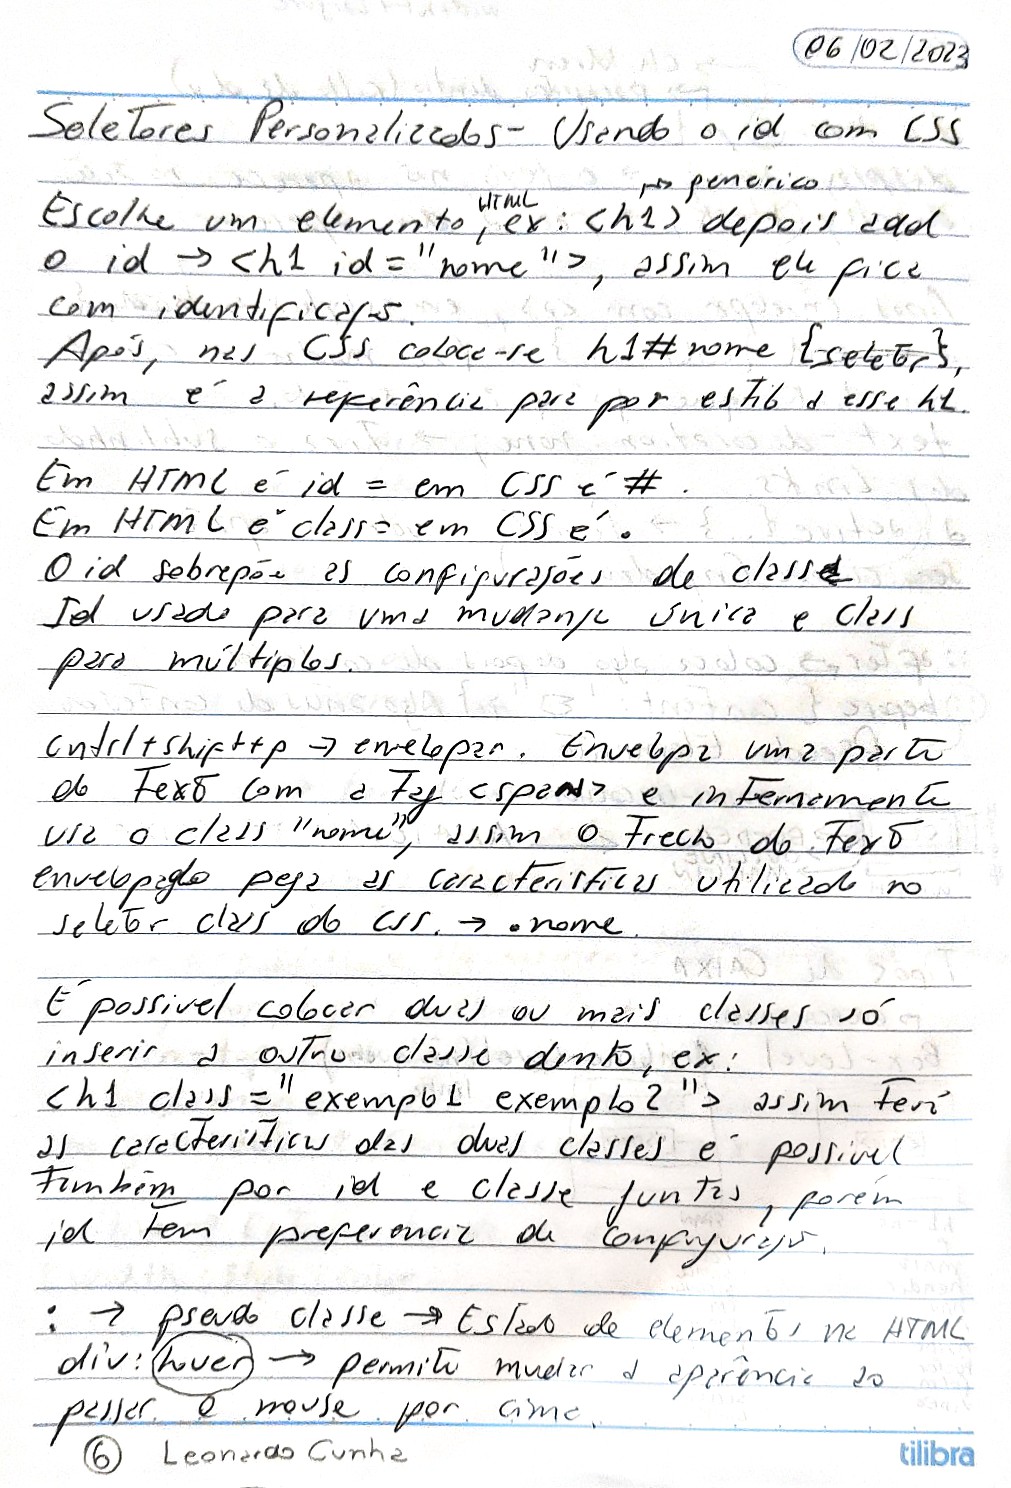 06/02/2023
Seletores Personalizados - Usando o id com CSS
↦ generico
Escolhe um elemento HTML, ex: <h1> depois add
o id → <h1 id="nome">, assim ele fica
com identificação.
Após, nas CSS coloca-se h1#nome {seletor},
assim é a referência para por estilo a esse h1.
Em HTML é id = em CSS é #.
Em HTML é class = em CSS é .
O id sobrepõe as configurações de class
Id usado para uma mudança única e class
para múltiplos.
cntrl+shift+p → envelopar. Envelopa uma parte
do texto com a tag <span> e internamente
usa o class "nome", assim o trecho do texto
envelopado pega as características utilizado no
seletor class do css. → .nome.
É possivel colocar duas ou mais classes só
inserir a outra classe dento, ex:
<h1 class="exemplo1 exemplo2"> assim terá
as características das duas classes é possivel
também por id e classe juntas, porém
id tem preferencia de configuração.
: → pseudo classe → Estado de elementos no HTML
div:hover → permite mudar a aparência ao
passar o mouse por cima.
6 Leonardo Cunha
tilibra